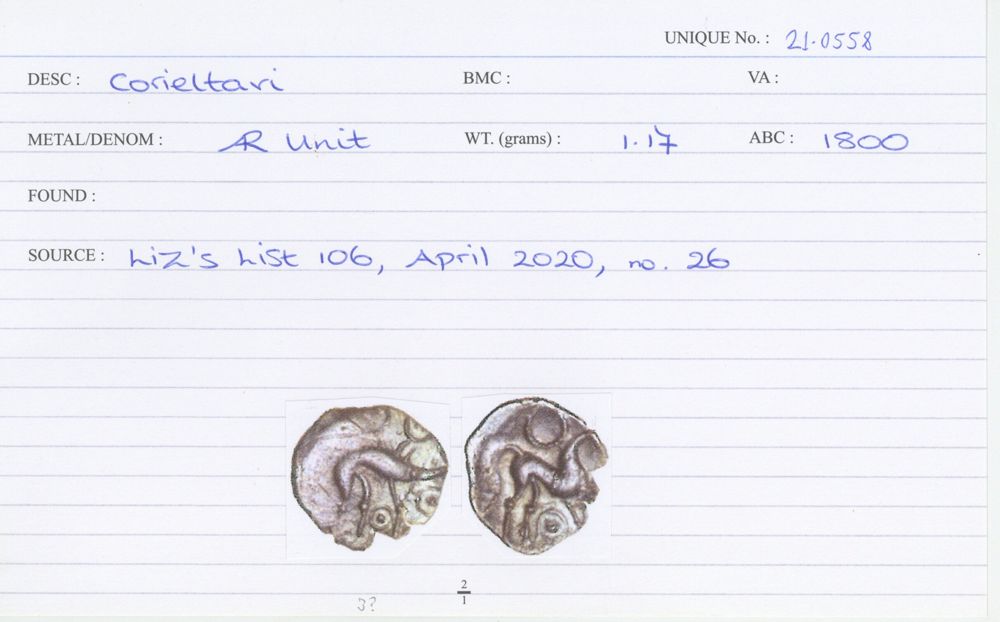 UNIQUE No. : 21.0558
DESC : Corieltavi BMC : VA :
METAL/DENOM : AR Unit WT. (grams) : 1.17 ABC : 1800
FOUND :
SOURCE : Liz's List 106, April 2020, no. 26
2
3? 1